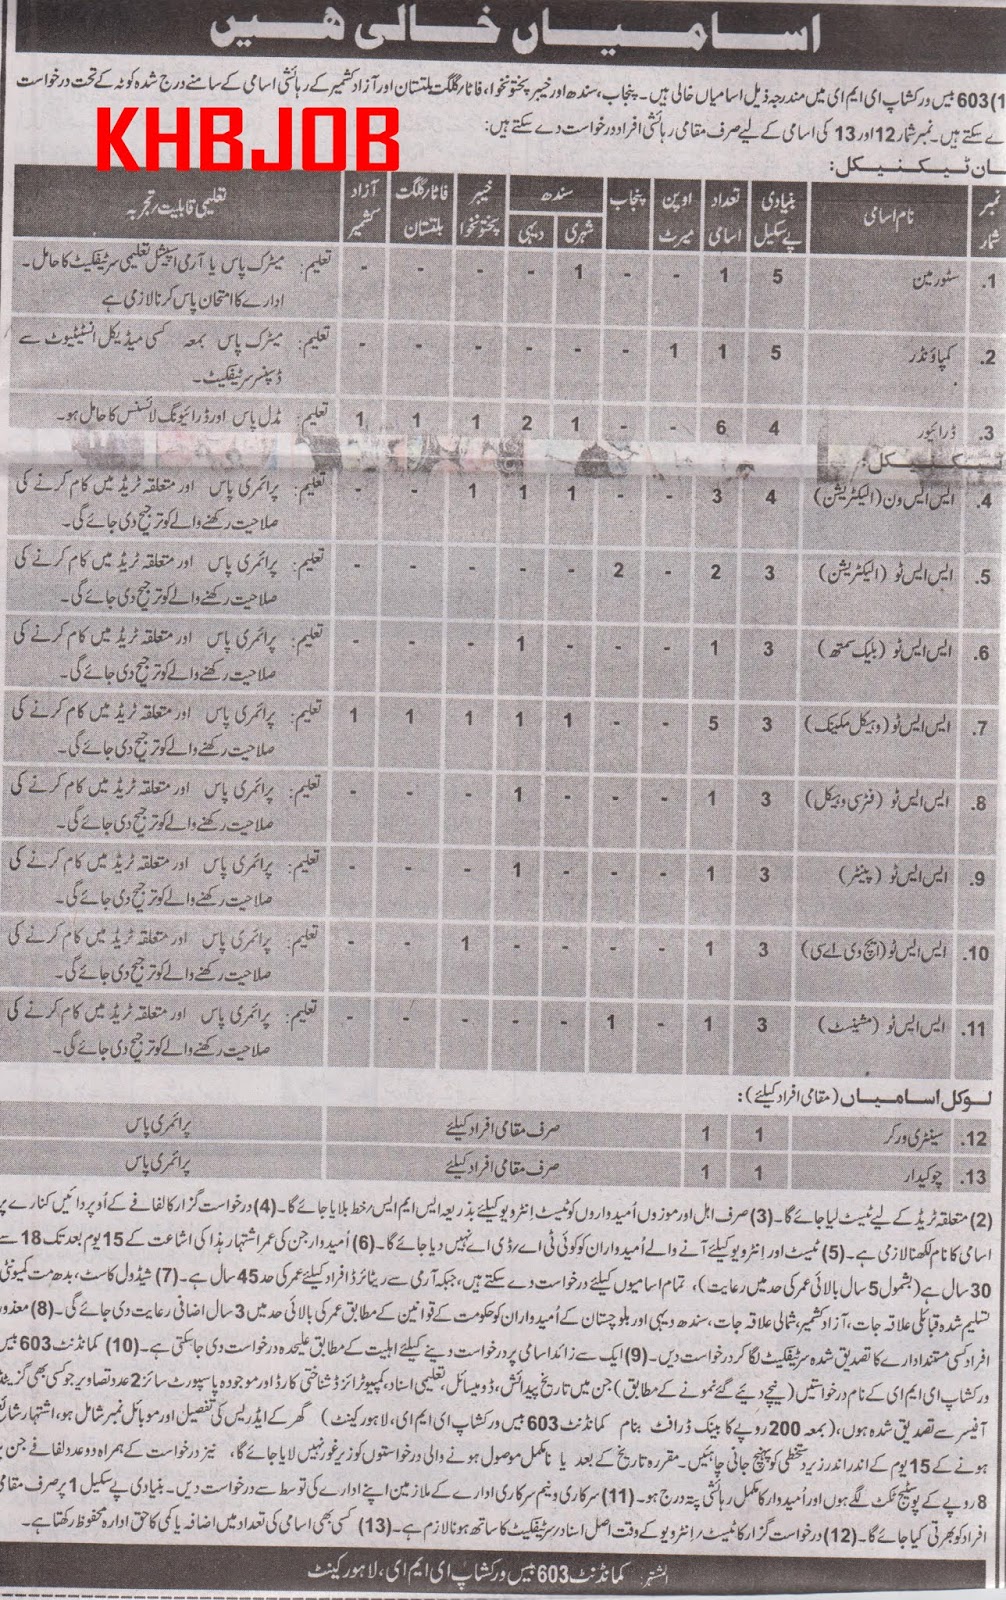 اسامیاں خالی ہیں
1) 603 بیس ورکشاپ ای ایم ای میں مندرجہ ذیل اسامیاں خالی ہیں۔ پنجاب، سندھ اور خیبر پختونخوا، فاٹا/گلگت بلتستان اور آزاد کشمیر کے رہائشی اسامی کے سامنے درج شدہ کوٹہ کے تحت درخواست
دے سکتے ہیں۔ نمبر شمار 12 اور 13 کی اسامی کے لیے صرف مقامی رہائشی افراد درخواست دے سکتے ہیں:
KHBJOB
نان ٹیکنیکل:
نمبر شمار | نام اسامی | بنیادی پے سکیل | تعداد اسامی | اوپن میرٹ | پنجاب | سندھ شہری | سندھ دیہی | خیبر پختونخوا | فاٹا/گلگت بلتستان | آزاد کشمیر | تعلیمی قابلیت/تجربہ
1. سٹور مین 5 1 - - 1 - - - - تعلیم: میٹرک پاس یا آرمی اسپیشل تعلیمی سرٹیفکیٹ کا حامل۔
ادارے کا امتحان پاس کرنا لازمی ہے
2. کمپاؤنڈر 5 1 1 - - - - - - تعلیم: میٹرک پاس بمعہ کسی میڈیکل انسٹیٹیوٹ سے
ڈسپنسر سرٹیفکیٹ۔
3. ڈرائیور 4 6 - - 1 2 1 1 1 تعلیم: مڈل پاس اور ڈرائیونگ لائسنس کا حامل ہو۔
ٹیکنیکل:
4. ایس ایس ون (الیکٹریشن) 4 3 - - 1 1 1 - - تعلیم: پرائمری پاس اور متعلقہ ٹریڈ میں کام کرنے کی
صلاحیت رکھنے والے کو ترجیح دی جائے گی۔
5. ایس ایس ٹو (الیکٹریشن) 3 2 - 2 - - - - - تعلیم: پرائمری پاس اور متعلقہ ٹریڈ میں کام کرنے کی
صلاحیت رکھنے والے کو ترجیح دی جائے گی۔
6. ایس ایس ٹو (بلیک سمتھ) 3 1 - - - 1 - - - تعلیم: پرائمری پاس اور متعلقہ ٹریڈ میں کام کرنے کی
صلاحیت رکھنے والے کو ترجیح دی جائے گی۔
7. ایس ایس ٹو (وہیکل مکینک) 3 5 - - 1 1 1 1 1 تعلیم: پرائمری پاس اور متعلقہ ٹریڈ میں کام کرنے کی
صلاحیت رکھنے والے کو ترجیح دی جائے گی۔
8. ایس ایس ٹو (فٹر سی وہیکل) 3 1 - - - 1 - - - تعلیم: پرائمری پاس اور متعلقہ ٹریڈ میں کام کرنے کی
صلاحیت رکھنے والے کو ترجیح دی جائے گی۔
9. ایس ایس ٹو (پینٹر) 3 1 - - - 1 - - - تعلیم: پرائمری پاس اور متعلقہ ٹریڈ میں کام کرنے کی
صلاحیت رکھنے والے کو ترجیح دی جائے گی۔
10. ایس ایس ٹو (ایچ وی اے سی) 3 1 - - - - 1 - - تعلیم: پرائمری پاس اور متعلقہ ٹریڈ میں کام کرنے کی
صلاحیت رکھنے والے کو ترجیح دی جائے گی۔
11. ایس ایس ٹو (مشینسٹ) 3 1 - 1 - - - - - تعلیم: پرائمری پاس اور متعلقہ ٹریڈ میں کام کرنے کی
صلاحیت رکھنے والے کو ترجیح دی جائے گی۔
لوکل اسامیاں (مقامی افراد کیلئے):
12. سینٹری ورکر 1 1 صرف مقامی افراد کیلئے پرائمری پاس
13. چوکیدار 1 1 صرف مقامی افراد کیلئے پرائمری پاس
(2) متعلقہ ٹریڈ کے لیے ٹیسٹ لیا جائے گا۔ (3) صرف اہل اور موزوں اُمیدواروں کو ٹیسٹ/انٹرویو کیلئے بذریعہ ایس ایم ایس/خط بلایا جائے گا۔ (4) درخواست گزار کا لفافے کے اُوپر دائیں کنارے پر
اسامی کا نام لکھنا لازمی ہے۔ (5) ٹیسٹ اور انٹرویو کیلئے آنے والے اُمیدواران کو کوئی ٹی اے/ڈی اے نہیں دیا جائے گا۔ (6) اُمیدوار جن کی عمر اشتہار ہذا کی اشاعت کے 15 یوم بعد تک 18 سے
30 سال ہے (بشمول 5 سال بالائی عمر کی حد میں رعایت)، تمام اسامیوں کیلئے درخواست دے سکتے ہیں، جبکہ آرمی سے ریٹائرڈ افراد کیلئے عمر کی حد 45 سال ہے۔ (7) شیڈول کاسٹ، بدھ مت کمیونٹی
تسلیم شدہ قبائلی علاقہ جات، آزاد کشمیر، شمالی علاقہ جات، سندھ دیہی اور بلوچستان کے اُمیدواران کو حکومت کے قوانین کے مطابق عمر کی بالائی حد میں 3 سال اضافی رعایت دی جائے گی۔ (8) معذور
افراد کسی مستند ادارے کا تصدیق شدہ سرٹیفکیٹ لگا کر درخواست دیں۔ (9) ایک سے زائد اسامی پر درخواست دینے کیلئے اہلیت کے مطابق علیحدہ درخواست دی جا سکتی ہے۔ (10) کمانڈنٹ 603 بیس
ورکشاپ ای ایم ای کے نام درخواستیں (نیچے دیئے گئے نمونے کے مطابق) جن میں تاریخ پیدائش، ڈومیسائل، تعلیمی اسناد، کمپیوٹرائزڈ شناختی کارڈ اور موجودہ پاسپورٹ سائز 2 عدد تصاویر جو کسی بھی گزیٹڈ
آفیسر سے تصدیق شدہ ہوں، (بمعہ 200 روپے کا بینک ڈرافٹ بنام کمانڈنٹ 603 بیس ورکشاپ ای ایم ای، لاہور کینٹ) گھر کے ایڈریس کی تفصیل اور موبائل نمبر شامل ہو، اشتہار شائع
ہونے کے 15 یوم کے اندر اندر زیر دستخطی کو پہنچ جانی چاہئیں۔ مقررہ تاریخ کے بعد یا نامکمل موصول ہونے والی درخواستوں کو زیر غور نہیں لایا جائے گا، نیز درخواست کے ہمراہ دو عدد لفافے جن پر
8 روپے کے پوسٹیج ٹکٹ لگے ہوں اور اُمیدوار کا مکمل رہائشی پتہ درج ہو۔ (11) سرکاری و نیم سرکاری ادارے کے ملازمین اپنے ادارے کی توسط سے درخواست دیں۔ بنیادی پے سکیل 1 پر صرف مقامی
افراد کو بھرتی کیا جائے گا۔ (12) درخواست گزار کا ٹیسٹ/انٹرویو کے وقت اصل اسناد/سرٹیفکیٹ کا ساتھ ہونا لازم ہے۔ (13) کسی بھی اسامی کی تعداد میں اضافہ یا کمی کا حق ادارہ محفوظ رکھتا ہے۔
المشتہر: کمانڈنٹ 603 بیس ورکشاپ ای ایم ای، لاہور کینٹ